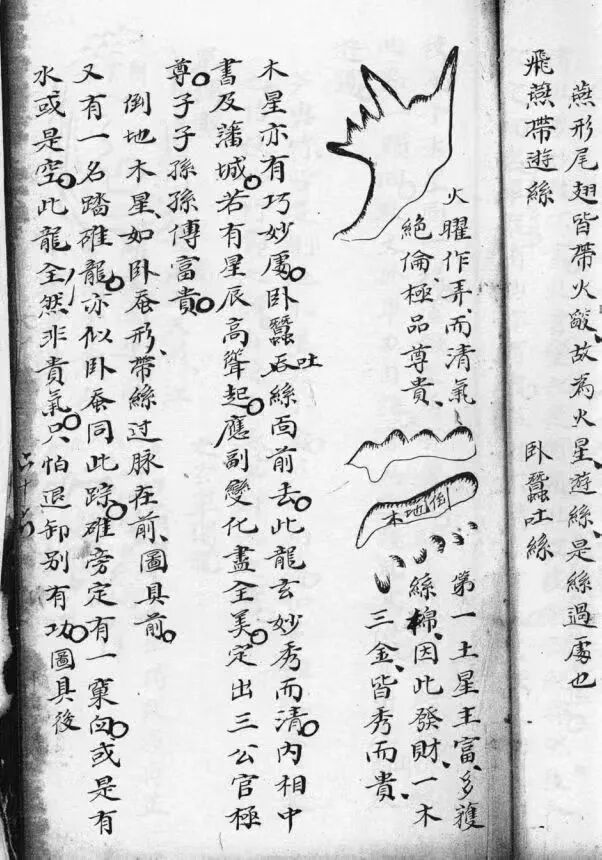 燕形尾翅皆帶火㷔、故為火星、遊絲、是絲過處也
飛燕帶遊絲
卧蠶吐絲
火曜作弄、而清氣
絕倫、極品尊貴、
倒地木
第一土星主富、多獲
絲棉、因此發財、一木
三金、皆秀而貴、
木星亦有巧妙處。卧蠶吐絲面前去。此龍玄妙秀而清。內相中
書及藩城。若有星辰高聳起。應副變化盡全美。定出三公官極
尊。子子孫孫傳富貴。
倒地木星、如卧蚕形、帶絲过脉在前、圖具前。
又有一名踏碓龍。亦似卧蚕同此踪。碓旁定有一窠囟。或是有
水或是空。此龍全然非貴氣。只怕退卸別有功。圖具後
六十六